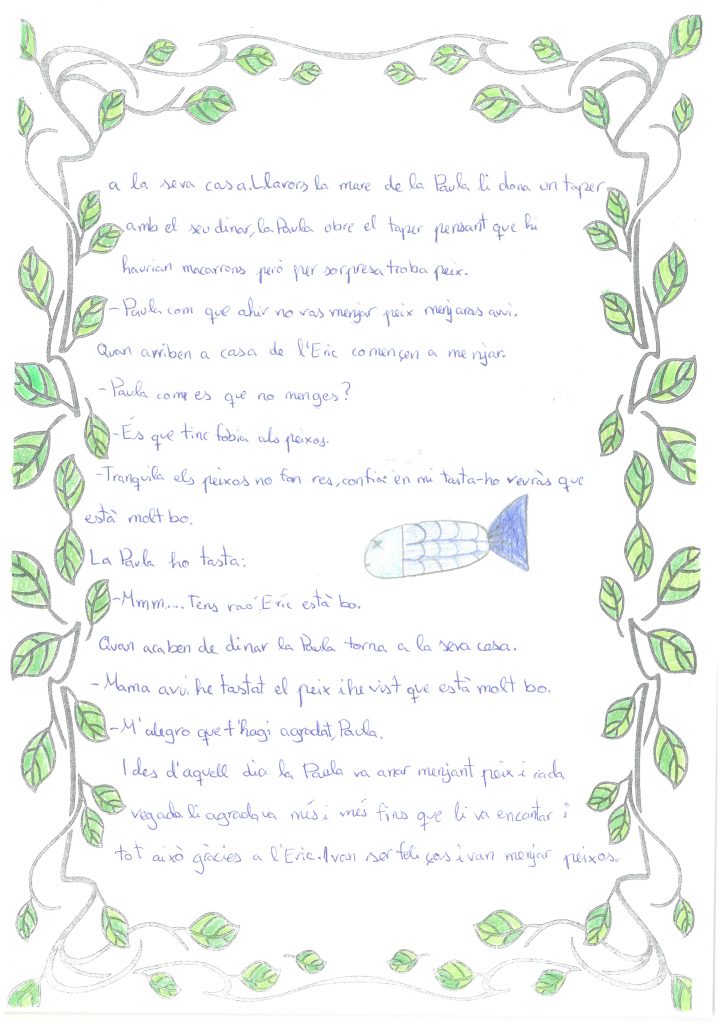 a la seva casa. Llavors la mare de la Paula li dona un taper
amb el seu dinar, la Paula obre el taper pensant que hi
haurian macarrons però per sorpresa troba peix.
- Paula com que ahir no vas menjar peix menjaras avui.
Quan arriben a casa de l'Eric començen a menjar.
- Paula com es que no menges?
- És que tinc fobia als peixos.
- Tranquila els peixos no fan res, confia en mi tasta-ho veuràs que
està molt bo.
La Paula ho tasta:
- Mmm.... Tens raó Eric està bo.
Quan acaben de dinar la Paula torna a la seva casa.
- Mama avui he tastat el peix i he vist que està molt bo.
- M'alegro que t'hagi agradat, Paula.
I des d'aquell dia la Paula va anar menjant peix i cada
vegada li agradava més i més fins que li va encantar i
tot això gràcies a l'Eric. I van ser feliços i van menjar peixos.